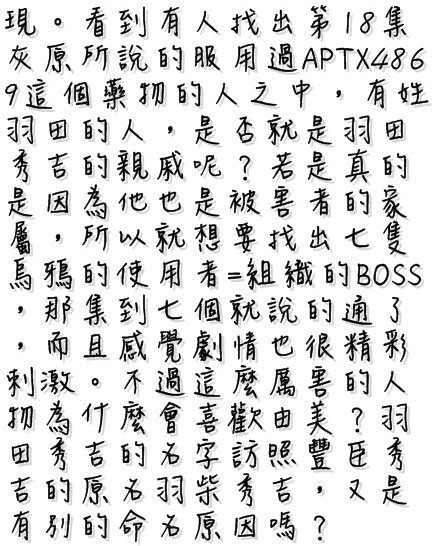 現。看到有人找出第18集
灰原所說的服用過APTX486
9這個藥物的人之中，有姓
羽田的人，是否就是羽田
秀吉的親戚呢？若是真的
是因為他也是被害者的家
屬，所以就想要找出七隻
烏鴉的使用者=組織的BOSS
，那集到七個就說的通了
，而且感覺劇情也很精彩
刺激。不過這麼厲害的人
物為什麼會喜歡由美？羽
田秀吉的名字訪照豐臣秀
吉的原名羽柴秀吉，又是
有別的命名原因嗎？